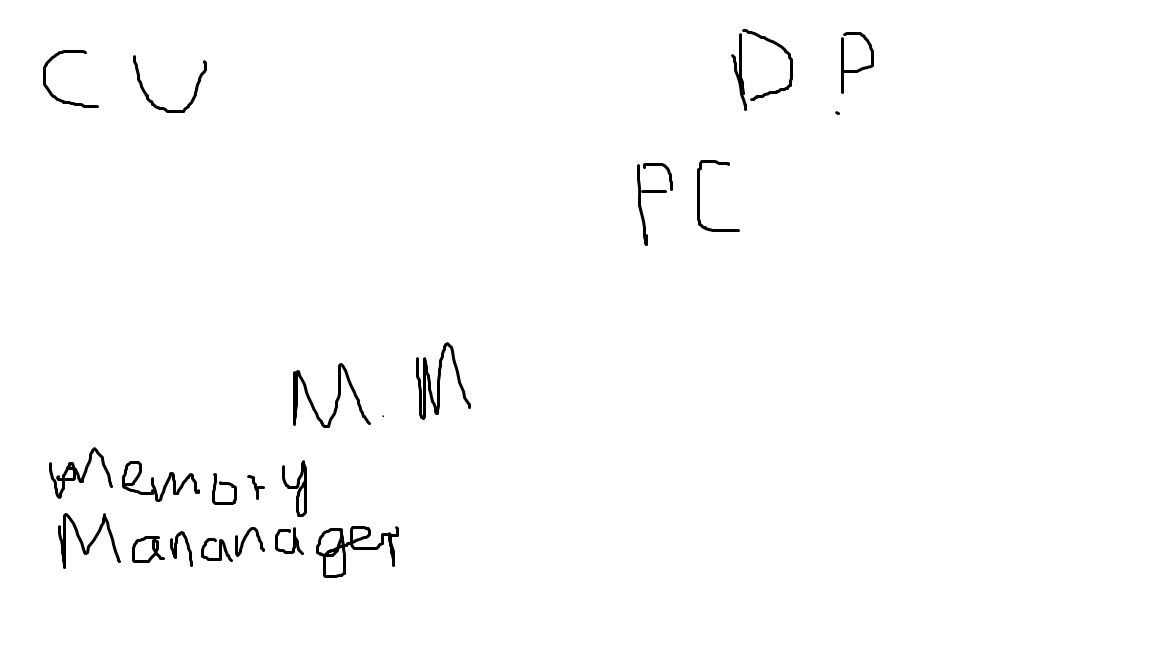 C U
D.P
PC
M.M
Memory
Mananager